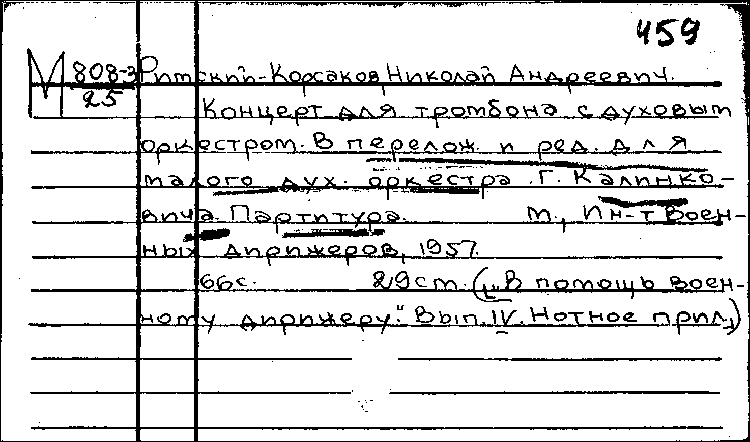 459
М 808-3 Римский-Корсаков, Николай Андреевич.
25 Концерт для тромбона с духовым
оркестром. В перелож. и ред. для
малого дух. оркестра Г. Калинко-
вича. Партитура. М., Ин-т воен-
ных дирижеров, 1957.
66с. 29см. („В помощь воен-
ному дирижеру". Вып. IV. Нотное прил.)